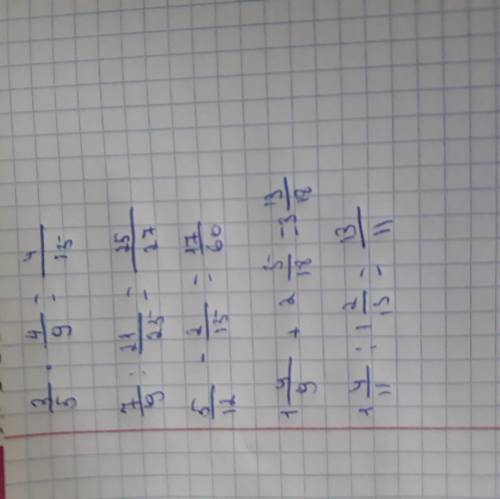 3/5 · 4/9 = 4/15
7/9 : 21/25 = 25/27
5/12 - 2/15 = 17/60
1 4/9 + 2 5/18 = 3 13/18
1 4/11 : 1 2/13 = 13/11